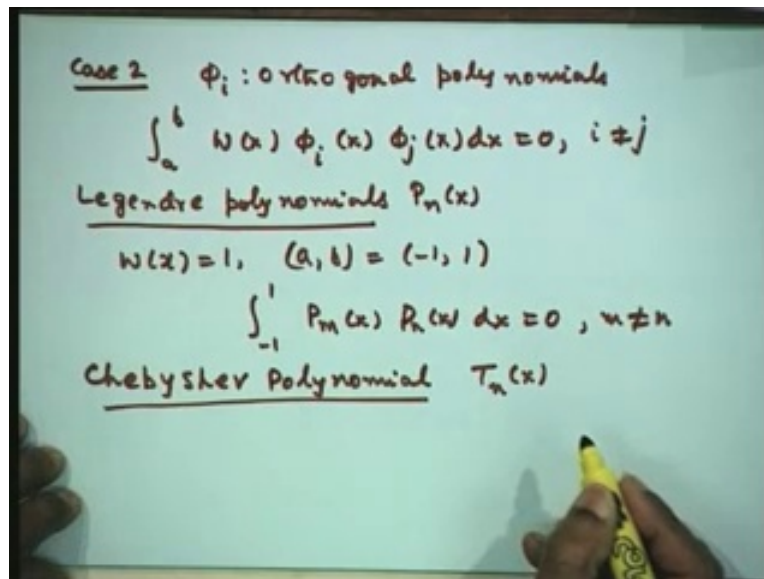 Case 2 Φᵢ : orthogonal polynomials
∫ₐᵇ W(x) Φᵢ(x) Φⱼ(x) dx = 0, i ≠ j
Legendre polynomials Pₙ(x)
W(x) = 1, (a, b) = (-1, 1)
∫₋₁¹ Pₘ(x) Pₙ(x) dx = 0, m ≠ n
Chebyshev Polynomial Tₙ(x)